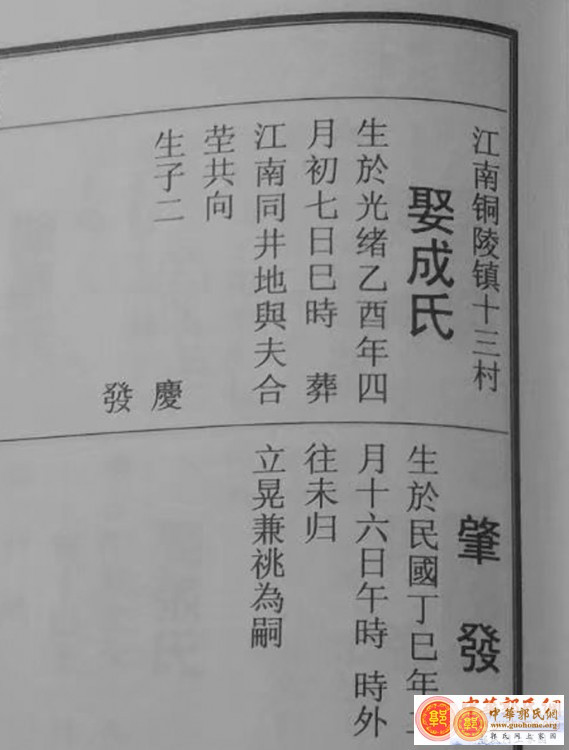 江南铜陵镇十三村
娶成氏
生於光绪乙酉年四
月初七日巳時 葬
江南同井地與夫合
茔共向
生子二
慶
發
肇發
生於民國丁巳年
月十六日午時 時外
往未归
立晃兼祧為嗣
中華郭氏網
www.guohome.com
郭氏网上家园